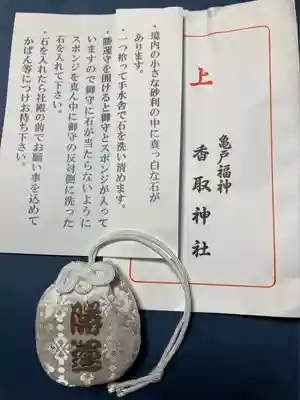 ・境内の小さな砂利の中に真っ白な石が
あります。
・一つ拾って手水舎で石を洗い清めます。
・勝運守を開けると御守とスポンジが入って
いますので御守に石が当たらないように
スポンジを真ん中に御守の反対側に洗った
石を入れて下さい。
・石を入れたら社殿の前でお願い事を込めて
かばん等につけお持ち下さい。
上
亀戸福神
香取神社
勝運